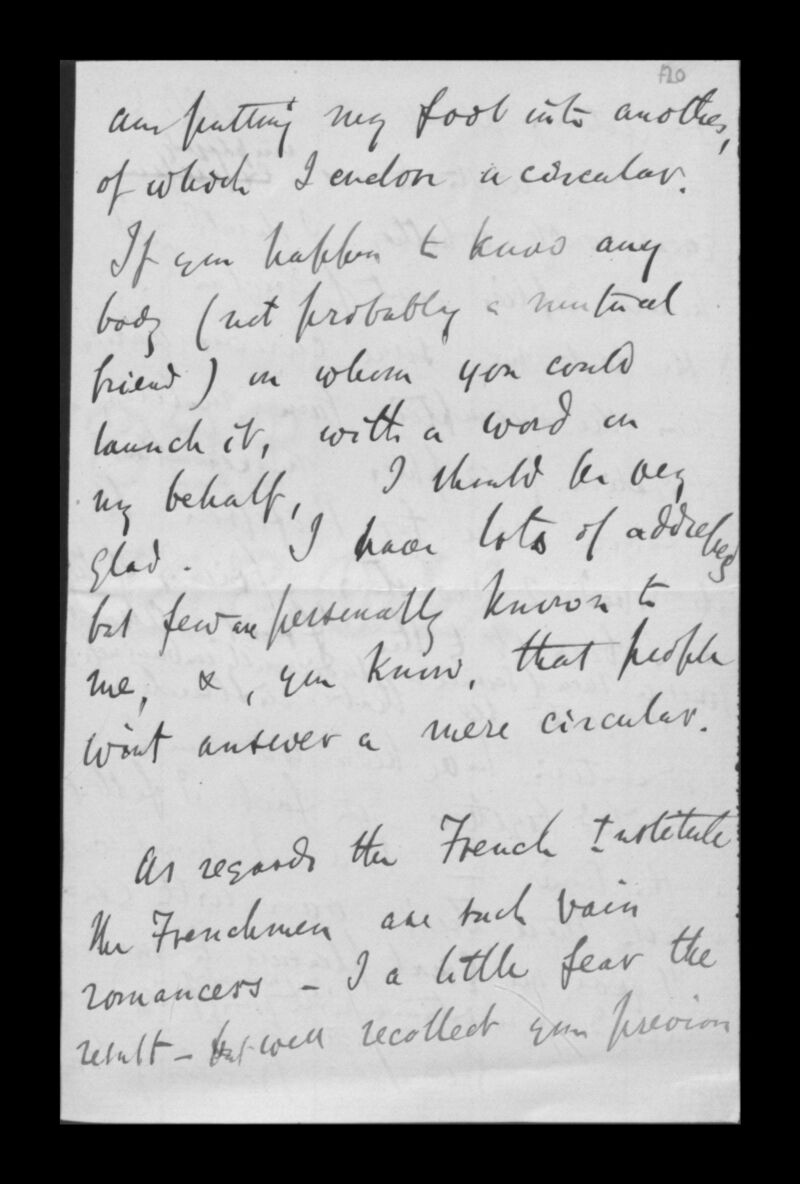 f20
am putting my foot into another,
of which I enclose a circular.
If you happen to know any
body (not probably a mutual
friend) on whom you could
launch it, with a word on
my behalf, I should be very
glad. I have lots of addresses
but few are personally known to
me, & , you know, that people
wont answer a mere circular.
As regards the French Institute
the Frenchmen are such vain
romancers – I a little fear the
result – but well recollect your previous